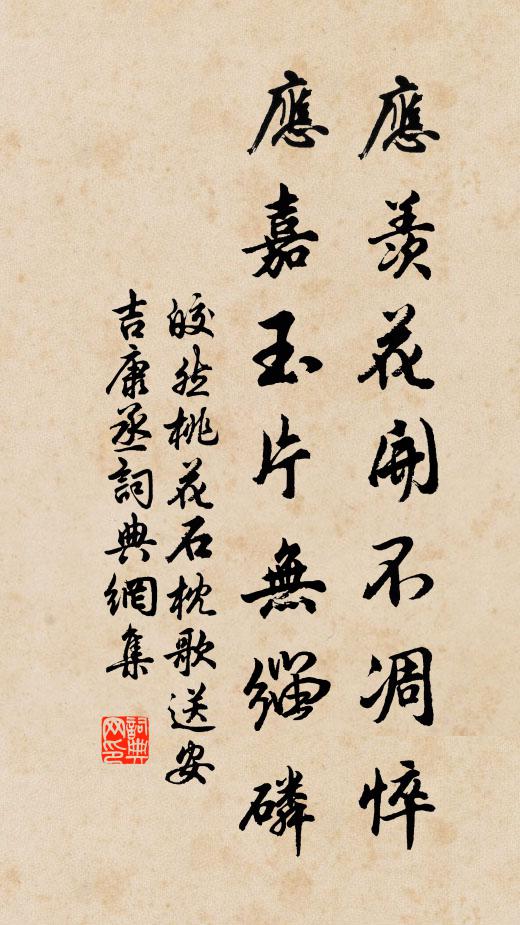 應羨花開不凋悴
應嘉玉片無緇磷
皎然桃花石枕歌送安
吉康丞詞典網集
詞典網印